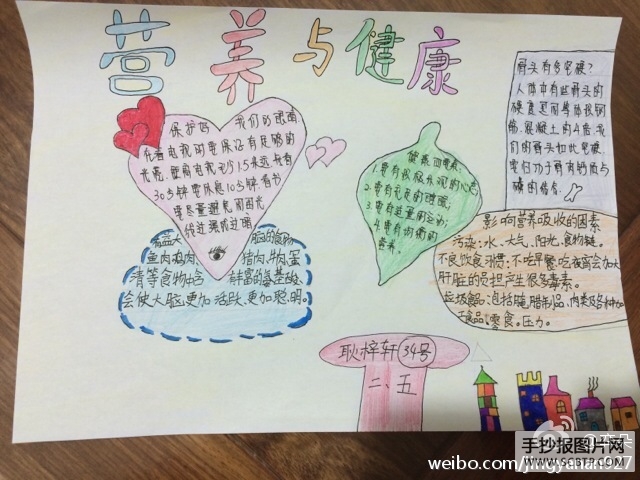 营养与健康
保护好 我们的眼睛
在看电视时要保证有足够的
光亮,距离电视至少1.5米远,或看
30分钟要休息10分钟.看书
要尽量避免用因光
线过强或过暗
有益大 脑的食物
鱼肉鸡肉 猪肉.牛肉.蛋
青等食物中含 有丰富的氨基酸,
会使大脑更加 活跃、更加聪明。
健康四要素:
1.要有积极乐观的心态;
2.要有充足的睡眠;
3.要有适量的运动;
4.要有均衡的
营养.
骨头有多坚硬?
人体中有些骨头的
硬度
混凝土的
们的骨头如此坚硬,
要归功于骨有钙质与
磷的结合.
影响营养吸收的因素
污染:水、大气、阳光、食物链。
不良饮食习惯:不吃早餐、吃夜宵会加大
肝脏的负担产生很多毒素。
垃圾食品:包括腌腊制品、肉类及各种加
工食品;零食。压力。
耿梓轩 34号
二、五
手抄报图片网
WWW.SCBTP.COM
weibo.com/jingyanan927